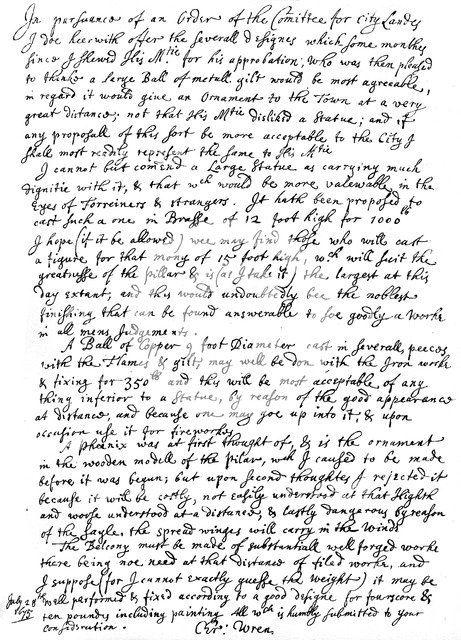 In pursuance of an Order of the Comittee for City Landes
I doe heerwith offer the severall designes which some monthes
since I shewed His M.tie for his approbation, who was then pleased
to thinke a large Ball of metall gilt would be most agreeable,
in regard it would give an Ornament to the Town at a very
great distance; not that His M.tie disliked a Statue; and if
any proposall of this sort be more acceptable to the City I
shall most readily represent the same to His M.tie
I cannot but comend a Large Statue as carrying much
dignitie with it, & that wch would be more valewable in the
Eyes of Forreiners & strangers. It hath been proposed to
cast such a one in Brasse of 12 foot high for 1000lb
I hope (if it be allowed) wee may find those who will cast
a figure for that mony of 15 foot high, wch will suit the
greatnesse of the pillar & is (as I take it) the largest at this
day extant; and this would undoubtedly bee the noblest
finishing that can be found answerable to soe goodly a worke
in all mens Judgements.
A Ball of Copper 9 foot Diameter cast in severall peeces
with the Flames & gilt, may well be don with the Iron worke
& fixing for 350lb and this will be most acceptable of any
thing inferior to a Statue, by reason of the good appearance
at distance, and because one may goe up into it; & upon
occasion use it for fireworkes
A phoenix was at first thought of, & is the ornament
in the wooden modell of the pilar, wch I caused to be made
before it was begun; but upon second thoughtes I rejected it
because it will be costly, not easily understood at that Highth
and worse understood at a distance, & lastly dangerous by reason
of the sayle, the spread winges will carry in the winde
The Belcony must be made of substantiall well forged worke
there being noe need at that distance of filed worke, and
I suppose (for I cannot exactly guesse the weight) it may be
well performed & fixed according to a good designe for fourscore &
ten poundes including painting. All wch is humbly submitted to your
consideration.
July 28th
1675
Chr: Wren.